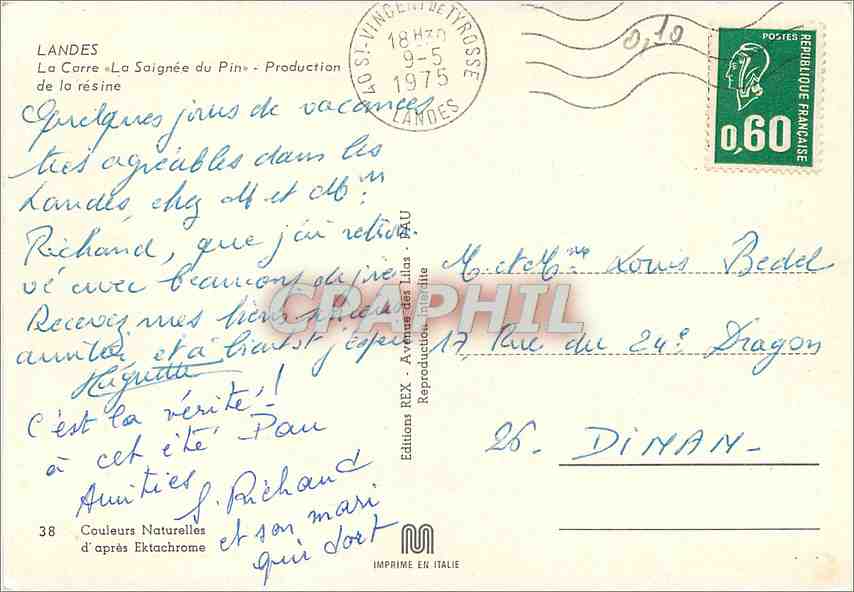 LANDES
La Carre «La Saignée du Pin» - Production
de la résine
40 ST-VINCENT DE TYROSSE
18H30
9-5
1975
LANDES
0,10
POSTES
REPUBLIQUE FRANÇAISE
0,60
Quelques jours de vacances
très agréables dans les
Landes, chez M et Mme
Richand, que j'ai retrou-
vé avec beaucoup de joie
Recevez mes biens
amitiés et à bientôt j'espère
Huguette
C'est la vérité!
à cet été Pau
Amitiés
S. Richand
et son mari
qui dort
M. et Mme Louis Bedel
17, Rue du 24e Dragon
26. DINAN-
Editions REX - Avenue des Lilas - PAU
Reproduction Interdite
CPAPHIL
38 Couleurs Naturelles
d'après Ektachrome
IMPRIME EN ITALIE